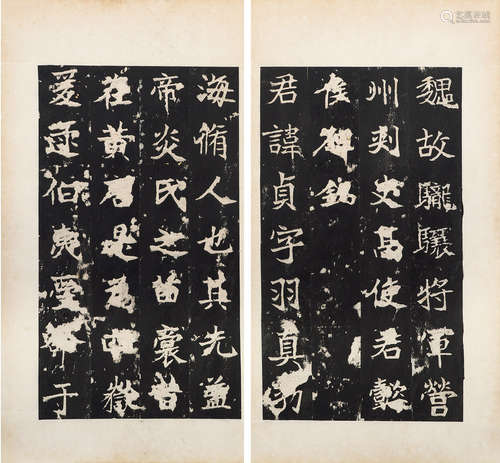 魏故龍驤將軍營
州刺史高使君懿
侯碑銘
君諱貞字羽真勃
海脩人也其先蓋
帝炎氏之苗裔昔
在黄唐是為四嶽
爰逮伯夷受命于